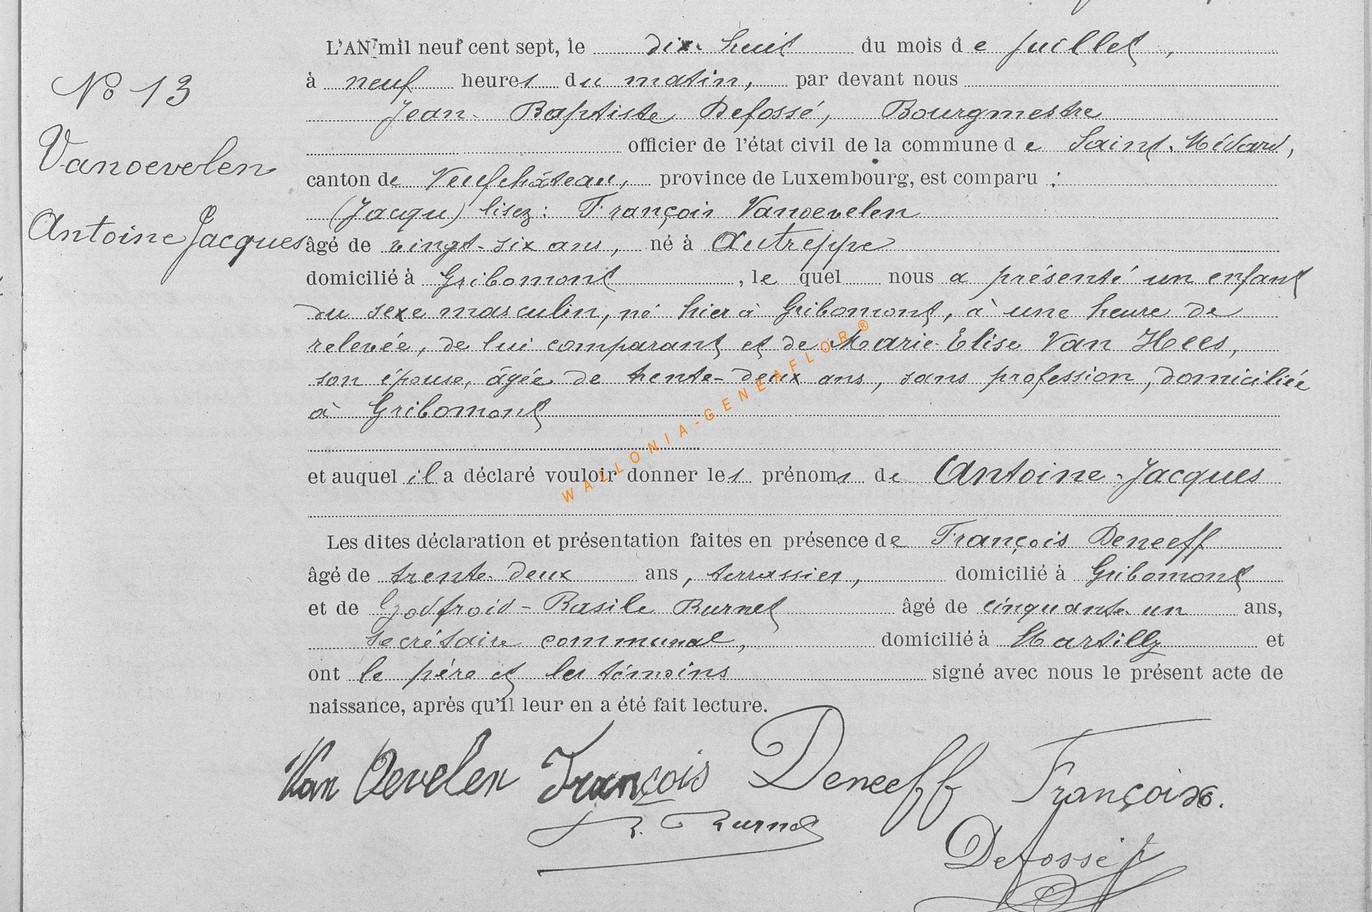 L'AN mil neuf cent sept, le dix-huit du mois de juillet,
No 13
à neuf heures du matin, par devant nous
Jean-Baptiste Defossé, Bourgmestre
officier de l'état civil de la commune de Saint-Médard,
Vanoevelen
canton de Neufchâteau, province de Luxembourg, est comparu :
(Jacqu) lisez: François Vanoevelen
Antoine Jacques
âgé de vingt-six ans, né à Autreppe
domicilié à Gribomont, lequel nous a présenté un enfant
du sexe masculin, né hier à Gribomont, à une heure de
relevée, de lui comparant et de Marie Elise Van Hees,
son épouse, âgée de trente-deux ans, sans profession, domiciliée
à Gribomont
et auquel il a déclaré vouloir donner les prénoms de Antoine-Jacques
Les dites déclaration et présentation faites en présence de François Deneeff
âgé de trente-deux ans, terrassier, domicilié à Gribomont
et de Godfroid-Basile Burnet âgé de cinquante-un ans,
secrétaire communal, domicilié à Martilly et
ont le père et les témoins signé avec nous le présent acte de
naissance, après qu'il leur en a été fait lecture.
Van Oevelen François Deneeff François.
B. Burnet
Defossé J
WALLONIA-GENEAFLOR®